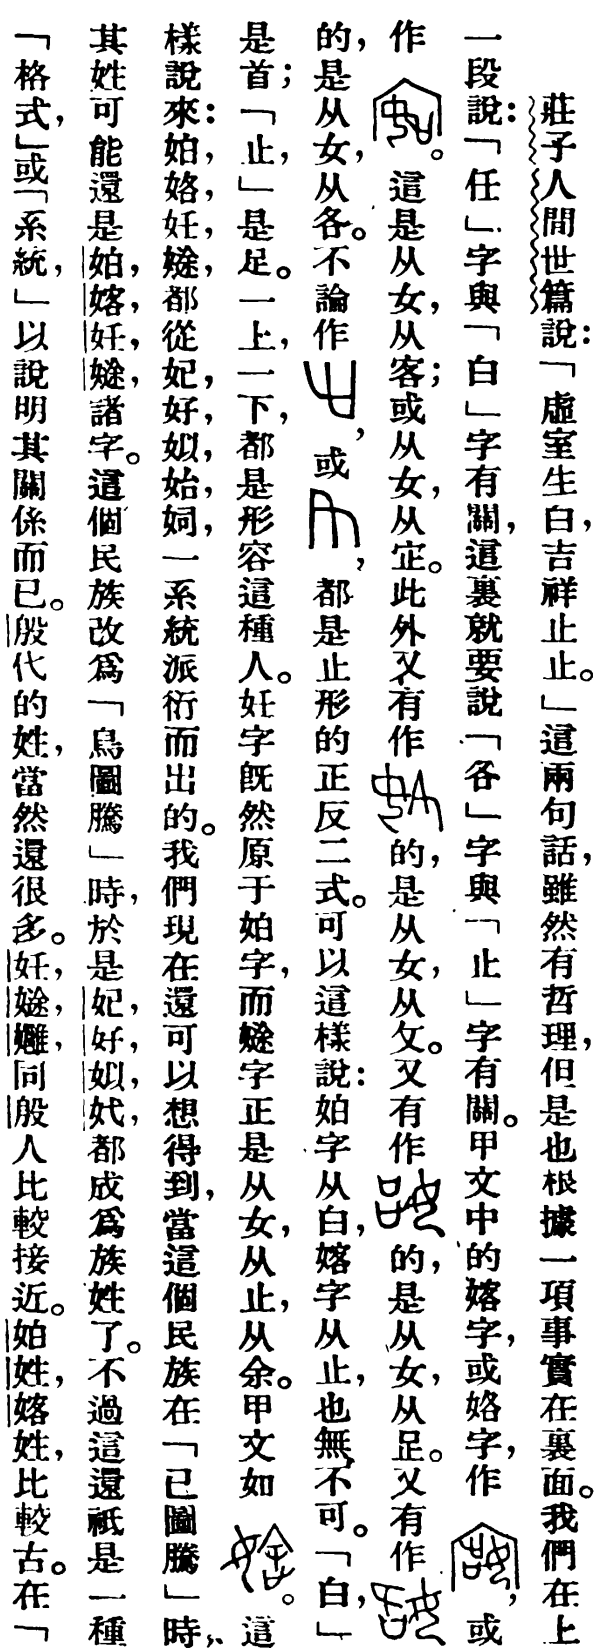 莊子人間世篇說：「虛室生白，吉祥止止。」這兩句話，雖然有哲理，但是也根據一項事實在裏面。我們在上
一段說：「任」字與「白」字有關，這裏就要說「各」字與「止」字有關。甲文中的嫆字，或姳字，作，或
作。這是从女，从客；或从女，从㝎。此外又有作的，是从女，从夂。又有作的，是从女，从足。又有作
的，是从女，从各。不論作，或，都是止形的正反二式。可以這樣說：妱字从白，嫆字从止，也無不可。「白，」
是首；「止，」是足。一上，一下，都是形容這種人。妊字旣然原于妱字，而嵞字正是从女，从止，从余。甲文如。這
樣說來：，，妊，，都從妃，好，姒，始，姛，一系統派衍而出的。我們現在還可以想得到，當這個民族在「已圖騰」時，
其姓可能還是，，妊，，諸字。這個民族改爲「鳥圖騰」時，於是妃，好，姒，㚤都成爲族姓了。不過這還祇是一種
「格式，」或「系統，」以說明其關係而已。殷代的姓，當然還很多。妊，，，同殷人比較接近。姓，姓，比較古。在「